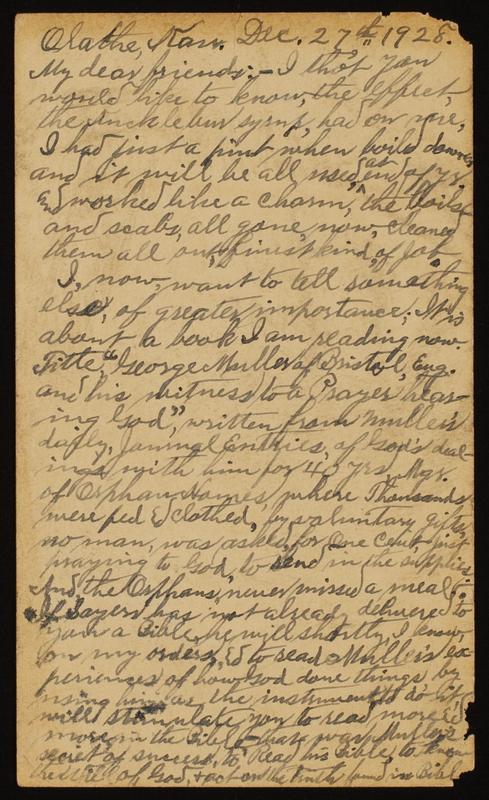 Olathe, Kan. Dec. 27th 1928.
My dear friends:- I thot you
would like to know, the effect,
the syrup, had on me,
I had just a pint when boild down,
and it will be all used at end of yr,
and worked like a charm, the boils
and scabs, all gone, now, cleaned
them all out, finest kind, of Job
I, now, want to tell something
else, of greater importance; It is
about a book I am reading now.
Title, "George Muller of Bristol, Eng.
and his witness to a Prayer hear-
ing God", written from Muller's
daily, Journal Entries, of God's deal-
ings with him for yrs Mgr.
of Orphan Homes, where Thousands
were fed & clothed, by voluntary gifts,
no man, was asked, for One Cent, just
praying to God, to send in the supplies
And the Orphans, never missed a meal.
If Sayers has not already delivered to
you a Bible, he will shortly, I know,
on my orders, & to read Muller's ex
periences of how God done things by
using him as the instrument to do it
will stimulate you to read, more &
more, in the Bible - that was Muller's
secret of success, to read his Bible, to know
the will of God, & act on the truth found in Bibl